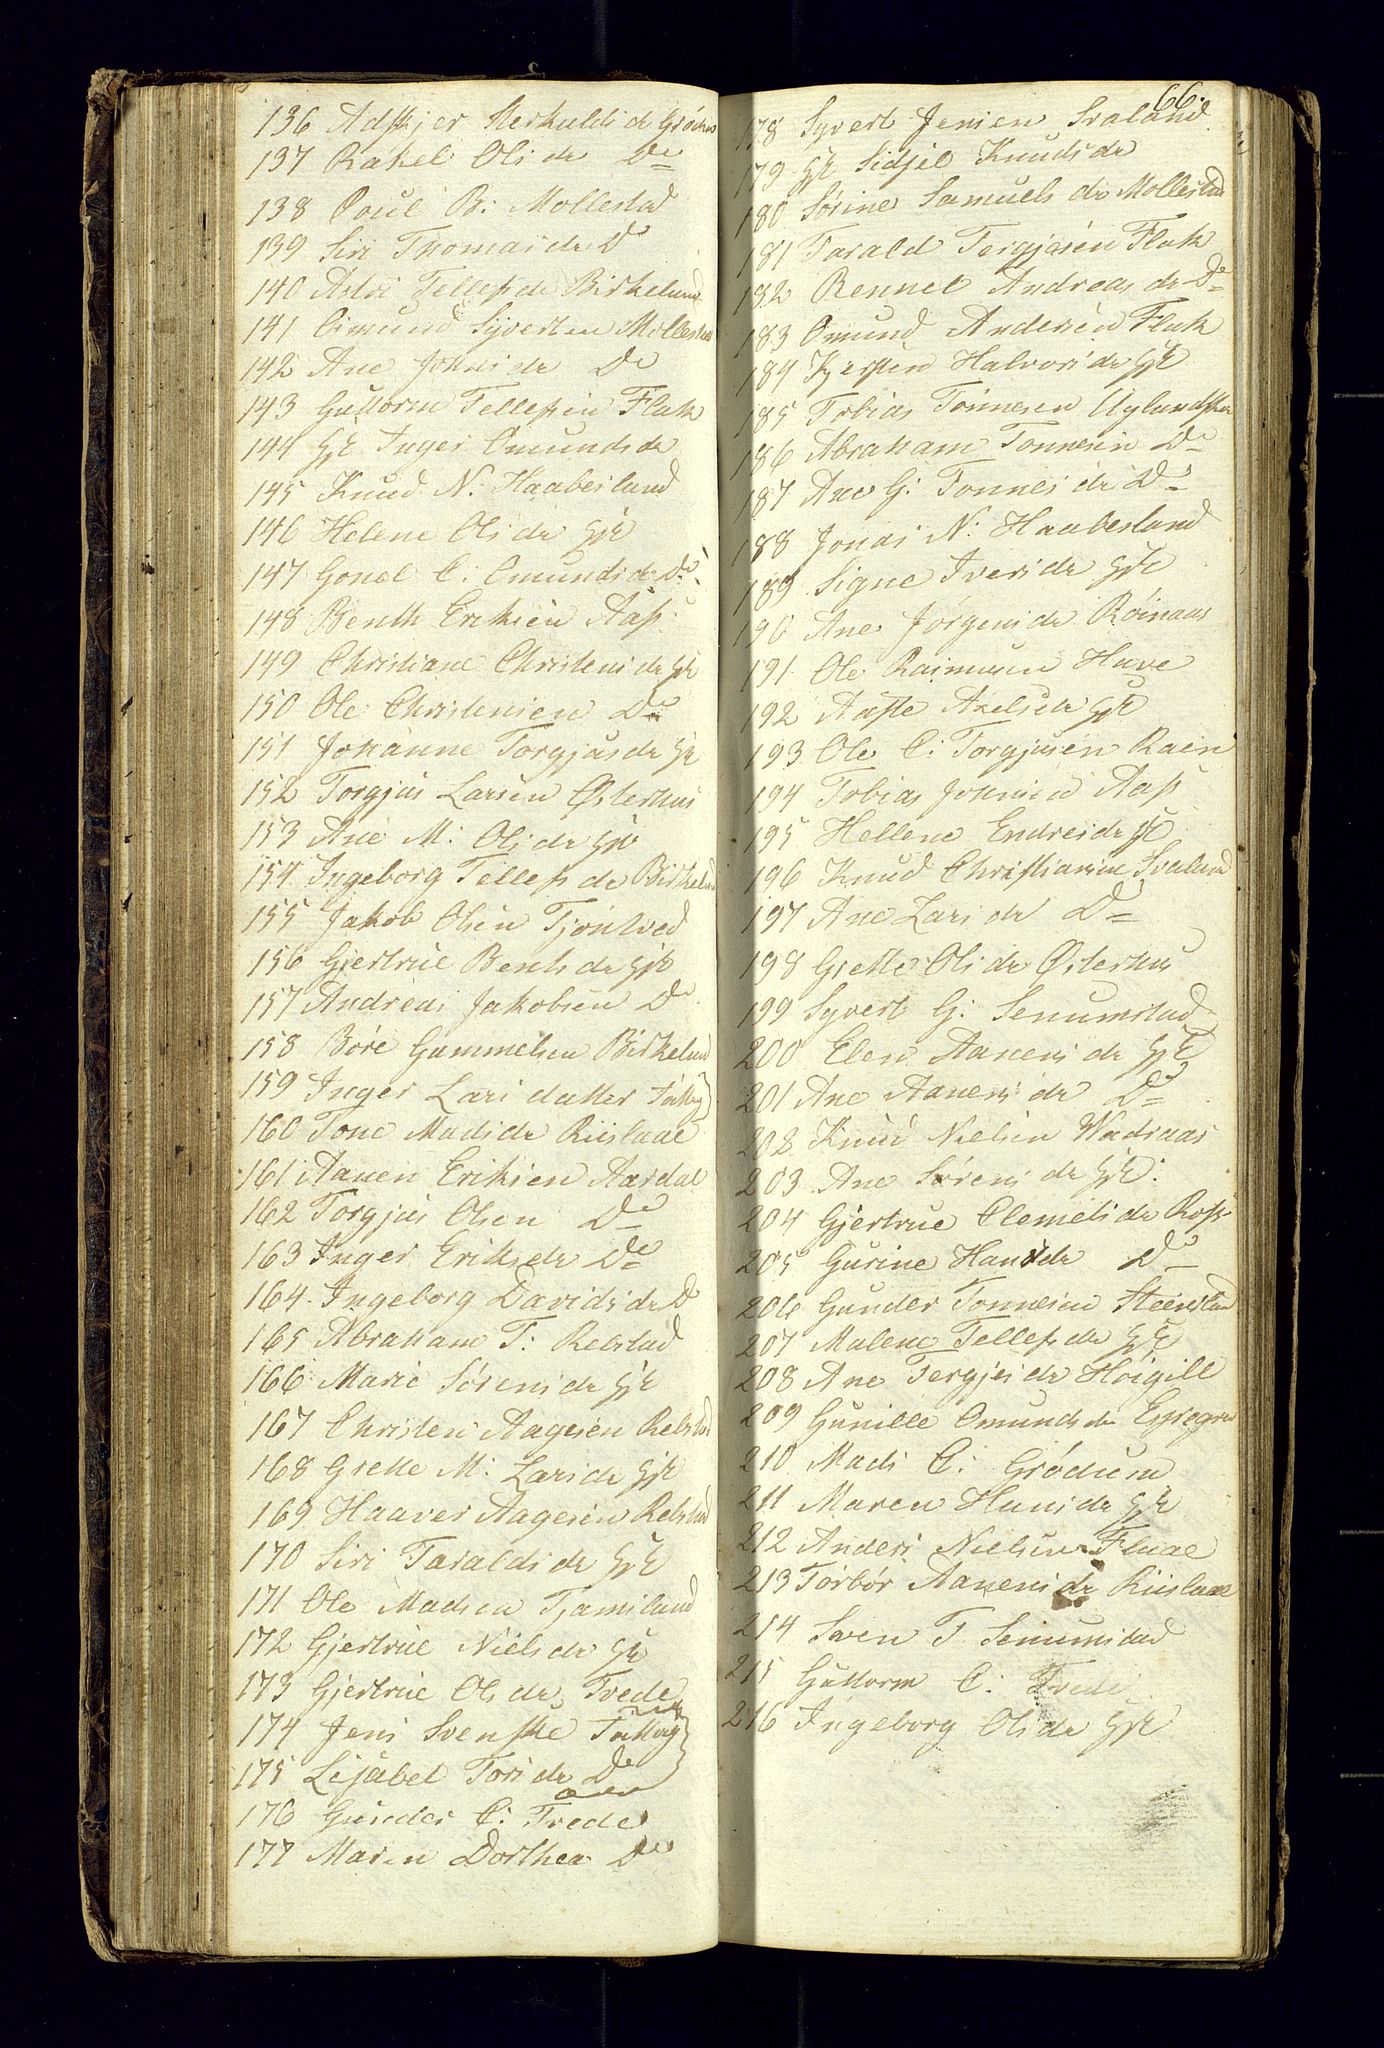 136 Adskjer Herkulds d Grødum
137 Rakel Olsdr Do
138 Poul B: Mollestad
139 Siri Thomasdr Do
140 Asloi Tellefsdr Birkeland
141 Omund Syversen Mollestad
142 Ane Johnsdr Do
143 Guttorm Tellefsen Flak
144 GK Inger Omundsdr
145 Knud N: Haabesland
146 Helene Olsdr GK
147 Gonel C: Omundsdr Do
148 Benth Eriksen Aas
149 Christiane Christensdr GK
150 Ole Christensen Do
151 Johanne Torgjusdr GK
152 Torgjus Larsen Østerhus
153 Ane M: Olsdr GK
154 Ingeborg Tellefsdr Birkeland
155 Jakob Olsen Tjøntved
156 Gjertrue Bentsdr GK
157 Andreas Jakobsen Do
158 Børe Gummelsen Birkeland
159 Inger Larsdatter Fattig
160 Tone Madsdr Riislaae
161 Aanen Eriksen Aardal
162 Torgjus Olsen Do
163 Inger Eriksdr Do
164 Ingeborg Davidsdr Do
165 Abraham T: Relstad
166 Marie Sørensdr GK
167 Christen Aagesen Relstad
168 Grethe M: Larsdr GK
169 Haaver Aagesen Relstad
170 Siri Taraldsdr GK
171 Ole Madsen Tjamsland
172 Gjertrue Nielsdr GK
173 Gjertrue Olsdr Tvede
174 Jens Svenske Fattig
175 Lisabel Torsdr Do
176 Gunder C: Tvede
177 Maren Dorthea Do
66.
178 Syvert Jensen Svaland
179 GK Sidsel Knudsdr
180 Sørine Samuelsdr Mollestad
181 Tarald Tergjesen Flak
182 Rennel Andreasdr Do
183 Omund Andersen Flak
184 Kjersten Halvorsdr GK
185 Tobias Tønnesen Uglands
186 Abraham Tønnesen Do
187 Ane G: Tønnesdr Do
188 Jonas N: Haabesland
189 Signe Iversdr GK
190 Ane Jørgensdr Røinaas
191 Ole Rasmusen Have
192 Aaste Axelsdr GK
193 Ole C: Torgjusen Raen
194 Tobias Johnsen Aas
195 Hellene Endresdr GK
196 Knud Christiansen Svaland
197 Ane Larsdr Do
198 Grethe Olsdr Østerhus
199 Syvert G: Senumstad
200 Elen Aanensdr GK
201 Ane Aanensdr Do
202 Knud Nielsen Wadsaas
203 Ane Sørensdr GK:
204 Gjertrue Clemetsdr Ross
205 Gurine Hansdr Do
206 Gunder Tønnesen Steensland
207 Malene Tellefsdr GK
208 Ane Tergjesdr Høigilt
209 Gunille Omundsdr Espegren
210 Mads C: Grødum
211 Maren Hansdr GK
212 Anders Nielsen Fluae
213 Torbør Aanensdr Riislaae
214 Sven T Senumstad
215 Guttorm C: Tvede
216 Ingeborg Olsdr GK